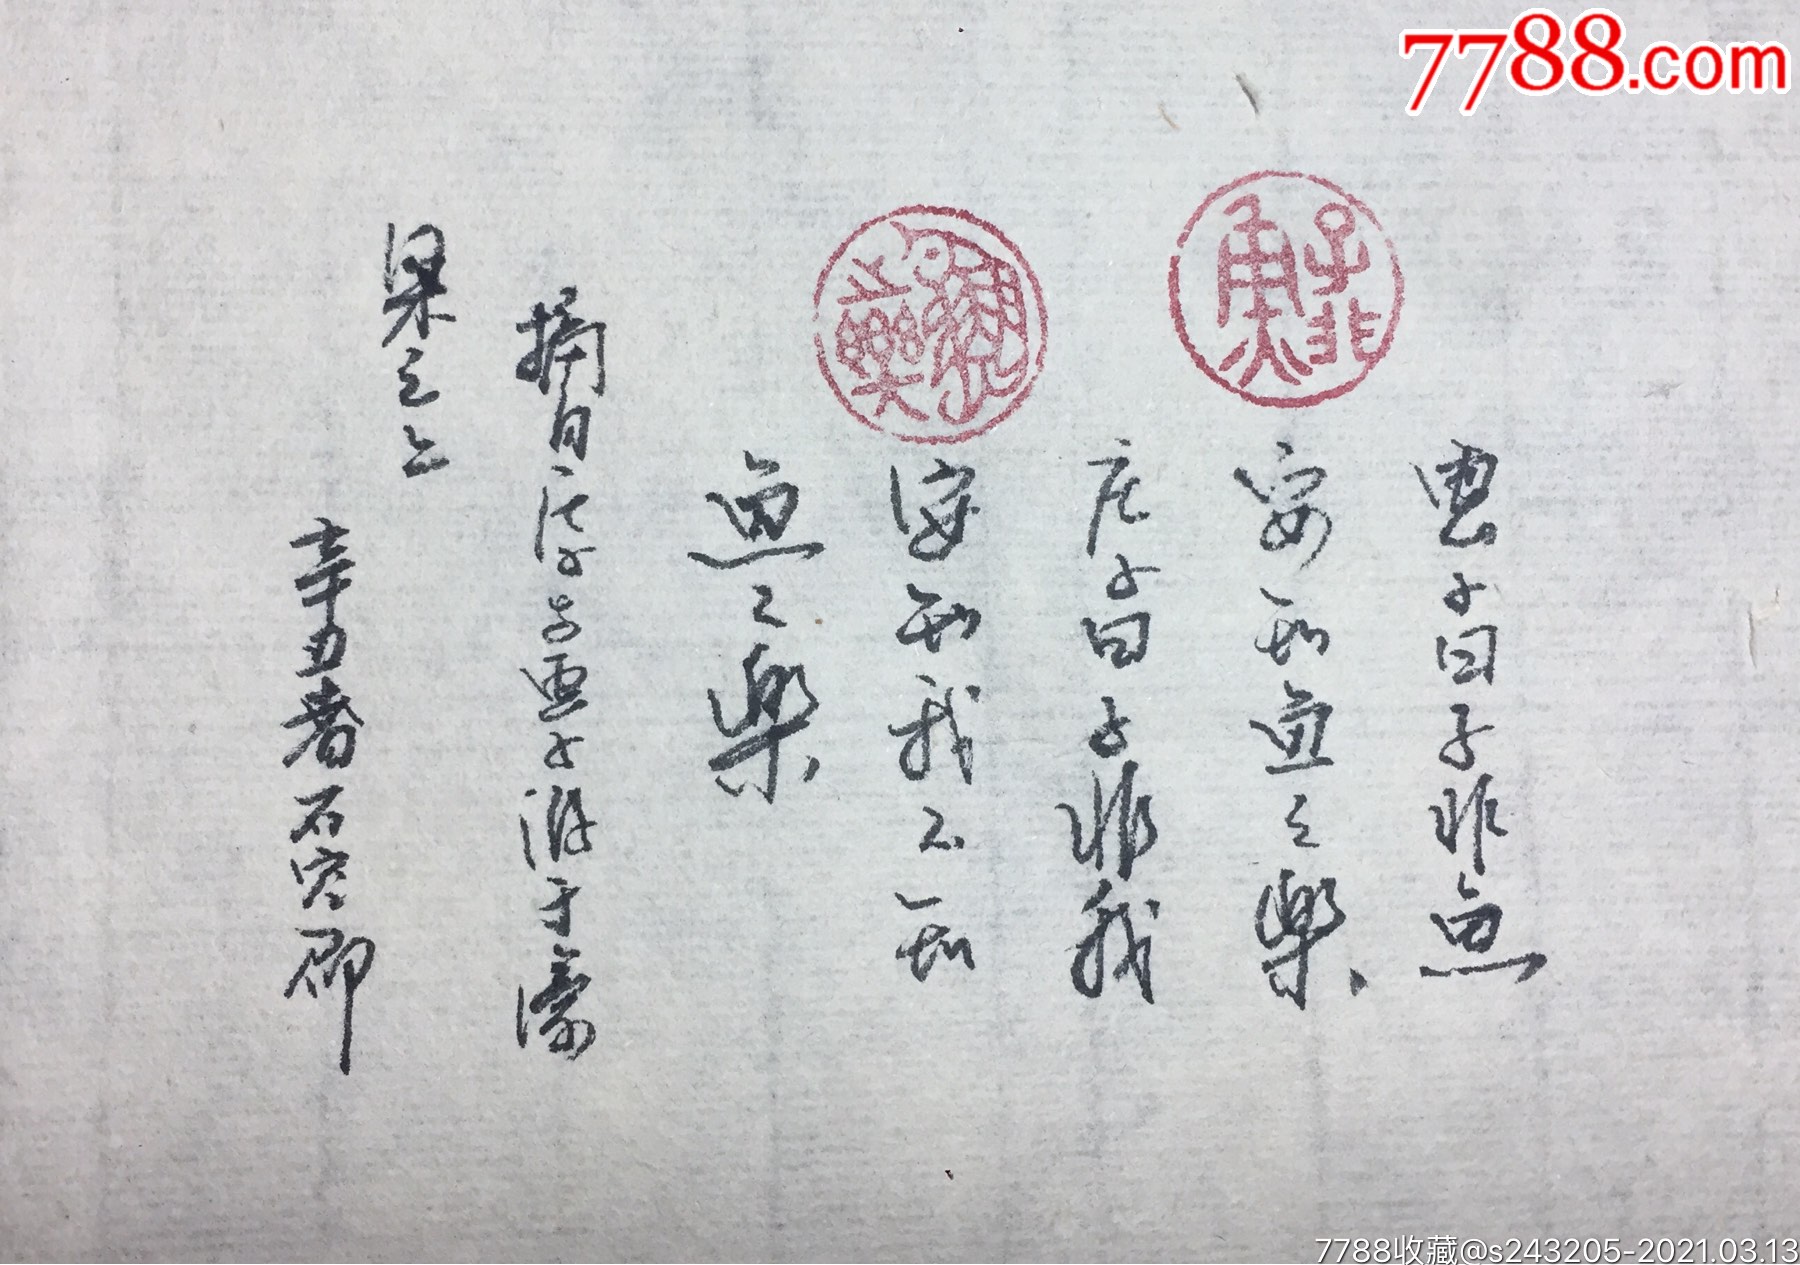 7788.com
惠子曰子非魚
安知魚之樂
庄子曰子非我
安知我不知
魚之樂
摘自庄子与惠子游于濠
梁之上
辛丑春石容
子非魚
樂
7788收藏@s243205-2021.03.13